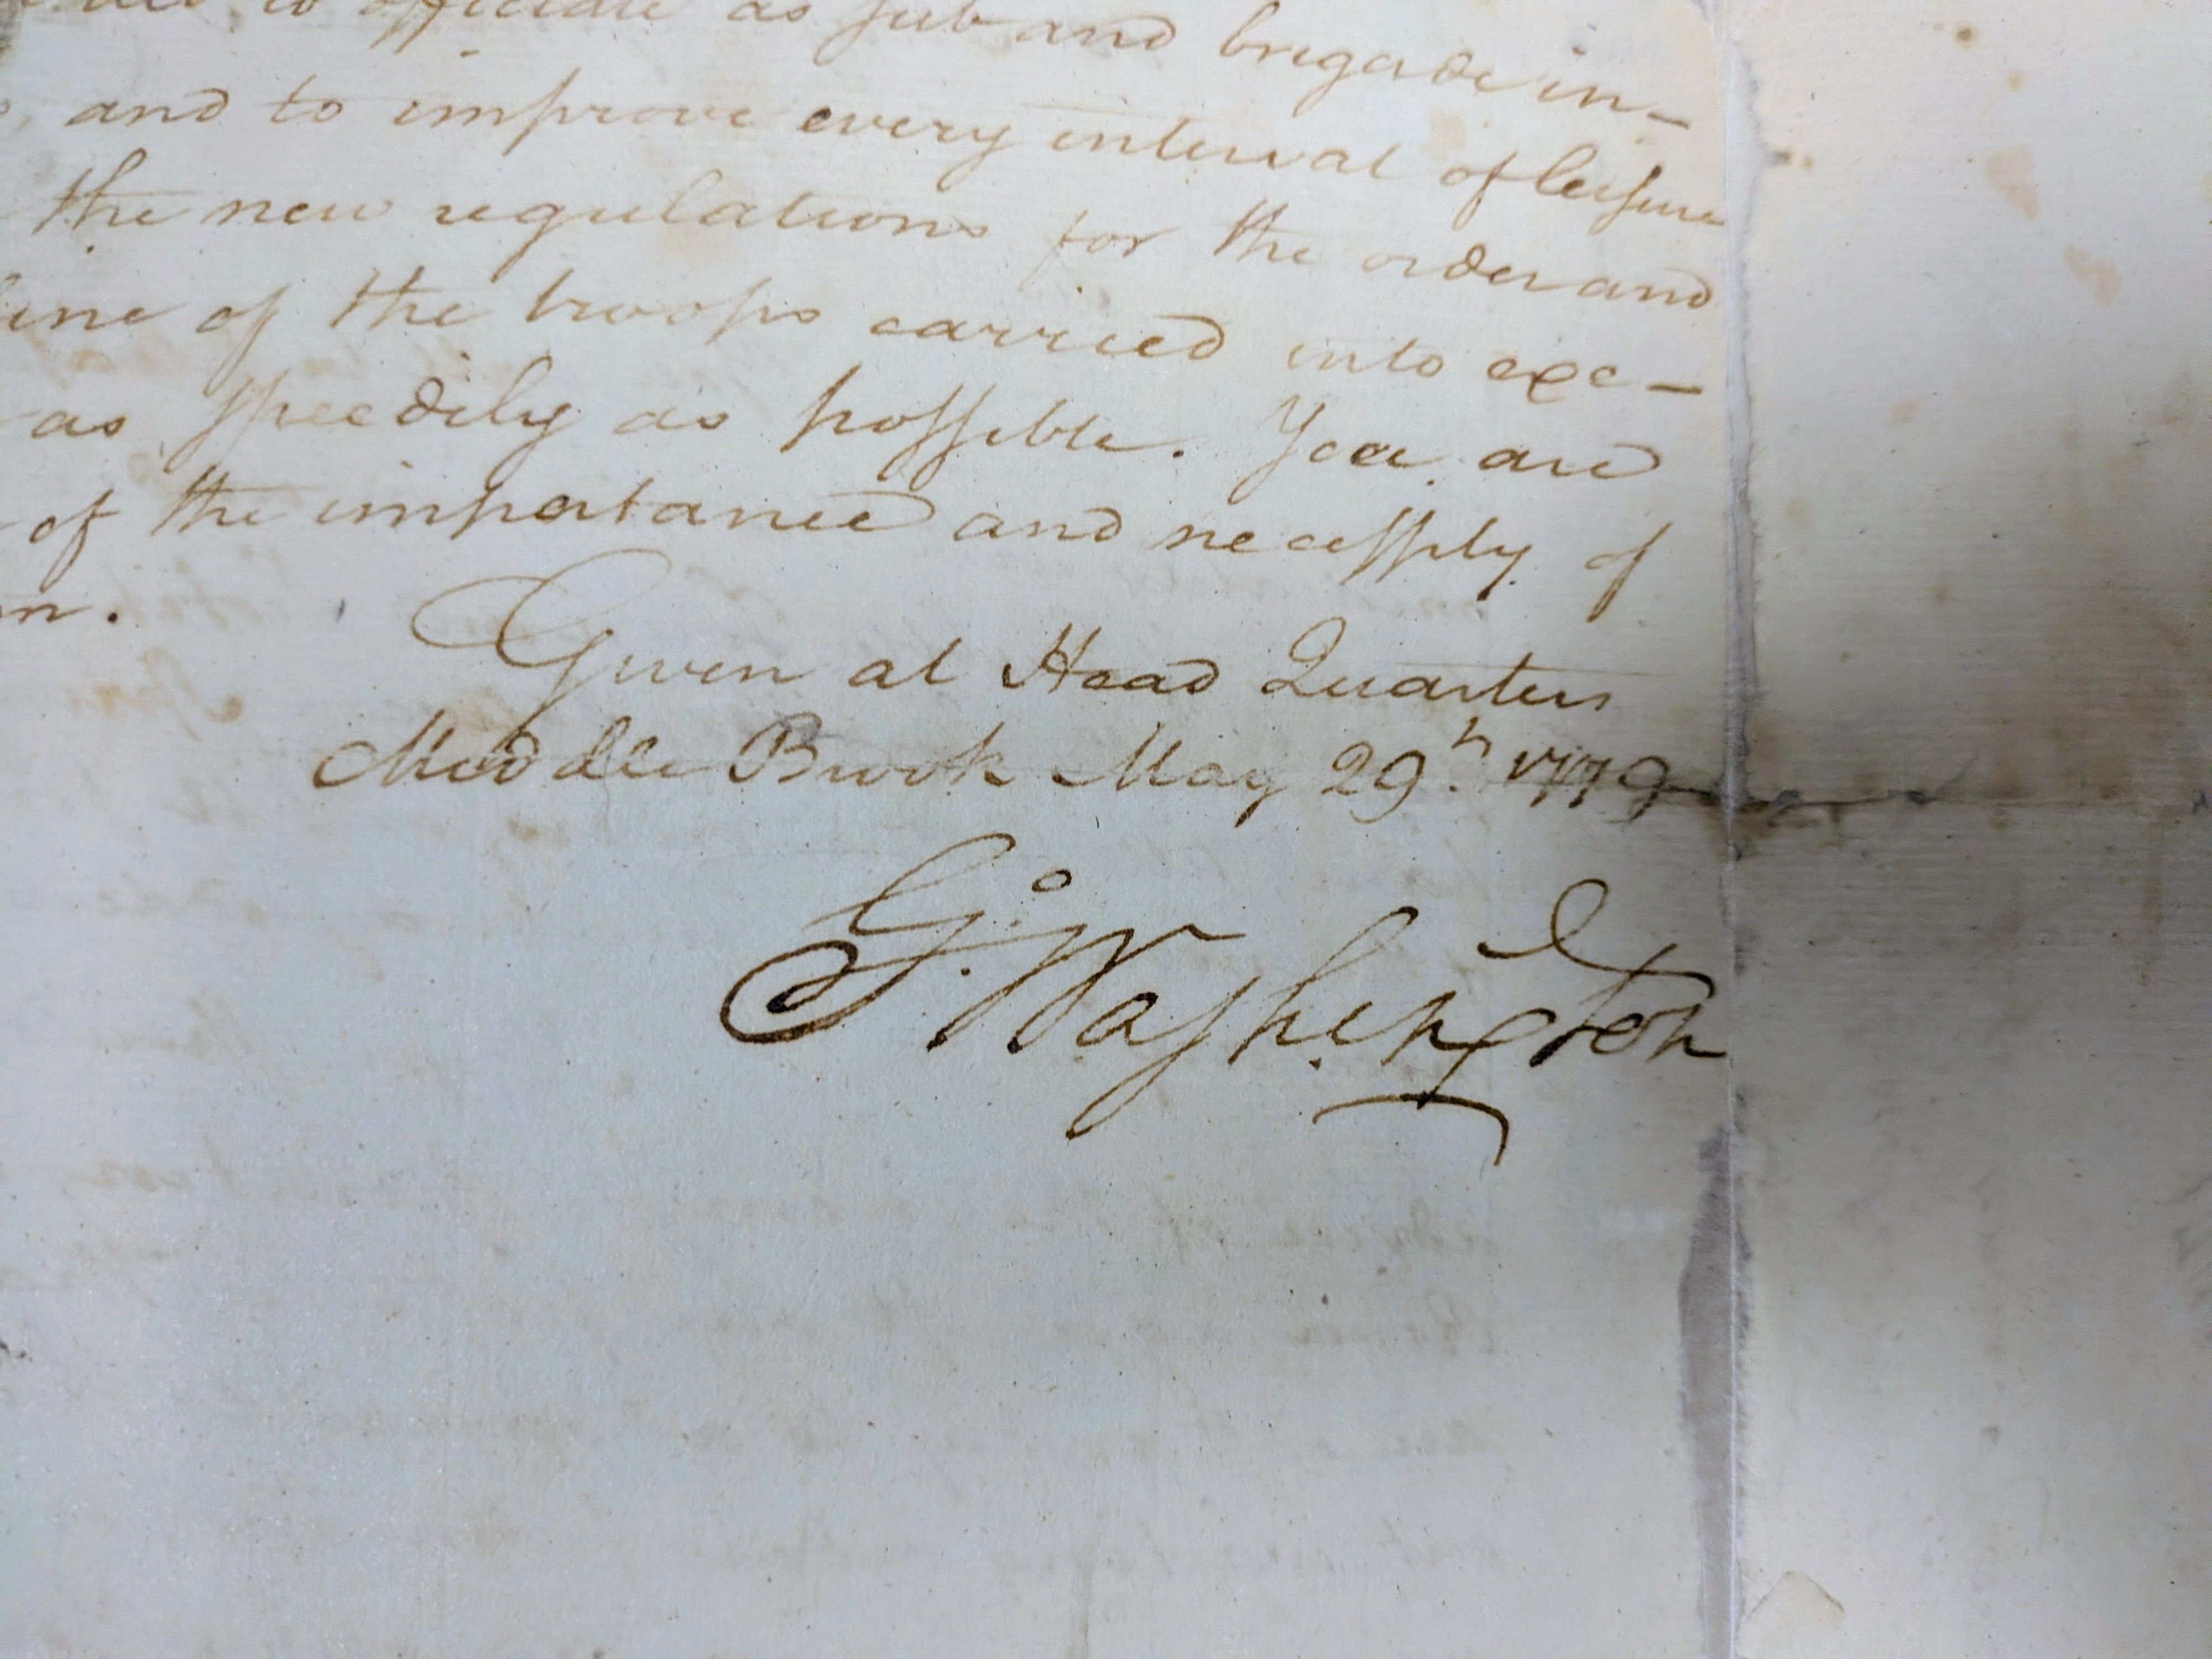 to officiate as sub and brigade in-
and to improve every interval of leisure
the new regulations for the order and
ine of the troops carried into exe-
as speedily as possible. You are
of the importance and necessity of
n.
Given at Head Quarters
Middle Brook May 29th. 1779
Go. Washington